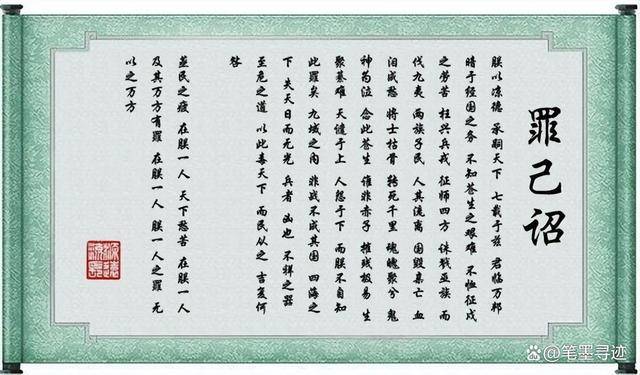 罪己诏
朕以凉德 承嗣天下 七载于兹 君临万邦
暗于经国之务 不知苍生之艰难 不恤征戍
之劳苦 枉兴兵戎 征师四方 诛戮亚族 而
伐九夷 两族子民 人其流离 国毁巢亡 血
泪成愁 将士枯骨 转死千里 魂魄聚兮 鬼
神为泣 念此苍生 谁非赤子 摧残极易 生
聚甚难 天谴于上 人怨于下 而朕不自知
此罪矣 九域之内 非战不成其国 四海之
下 失天日而无光 兵者 凶也 不祥之器
至危之道 以此毒天下 而民以之 吉复何
咎
盖民之疲 在朕一人 天下愁苦 在朕一人
及其万方有罪 在朕一人 朕一人之罪 无
以之万方
笔墨寻迹